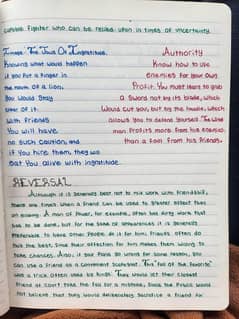 capable fighter who can be relied upon in times of uncertainty.
Image: The Jaws Of Ingratitude.
Knowing what would happen
if you put a finger in
the mouth of a lion,
you would stay
clear of it.
With friends
you will have
no such caution, and
if you hire them, they will
eat you alive with ingratitude.
Authority
Know how to use
enemies for your own
Profit. You must learn to grab
a sword not by its blade, which
would cut you, but by the handle, which
allows you to defend yourself. The wise
man profits more from his enemies,
than a fool from his friends.
REVERSAL
Although it is generally best not to mix work with friendship,
there are times when a friend can be used to greater effect than
an enemy. A man of power, for example, often has dirty work that
has to be done, but for the sake of appearances it is generally
preferable to have other people do it for him; friends often do
this the best, since their affection for him makes them willing to
take chances. Also, if your plans go wrong for some reason, you
can use a friend as a convenient scapegoat. This "fall of the favorite"
was a trick often used by kings. They would let their closest
friend at court take the fall for a mistake, since the public would
not believe that they would deliberately sacrifice a friend